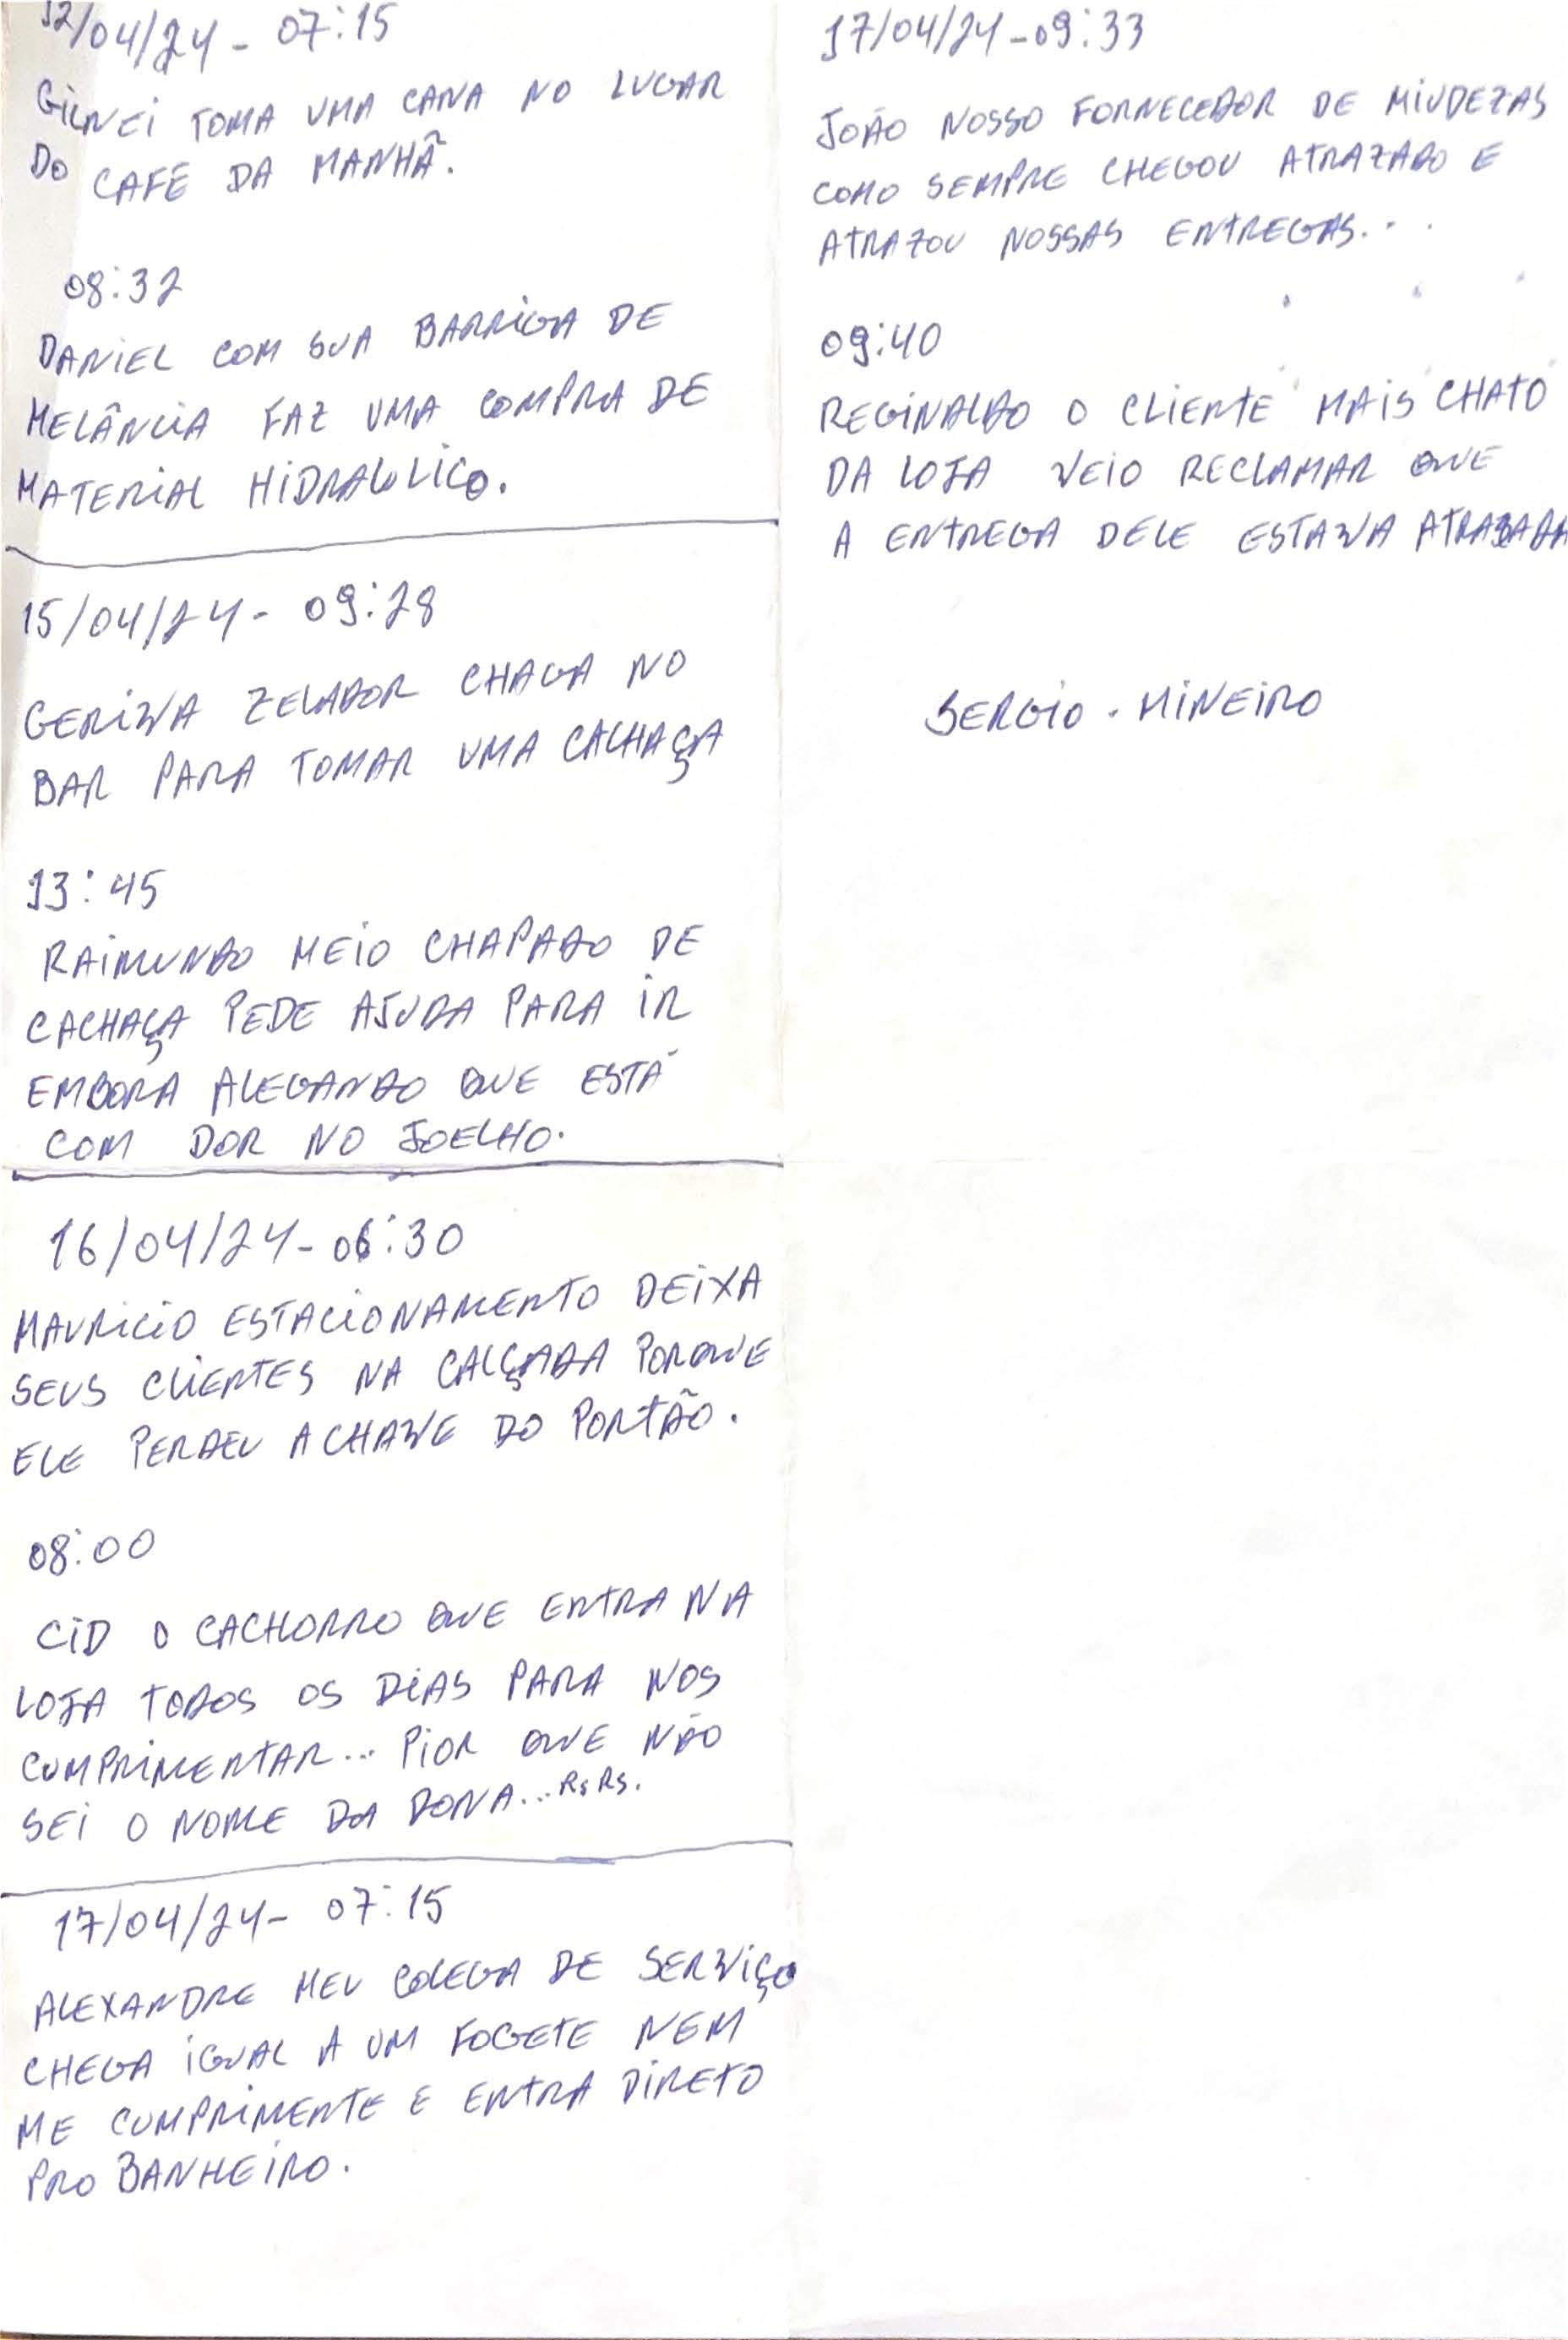 12/04/24 - 07:15
GILNEI TOMA UMA CANA NO LUGAR
DO CAFÉ DA MANHÃ.
08:32
DANIEL COM SUA BARRIGA DE
MELÂNCIA FAZ UMA COMPRA DE
MATERIAL HIDRAULICO.
15/04/24 - 09:28
GERIVA ZELADOR CHAGA NO
BAR PARA TOMAR UMA CACHAÇA
13:45
RAIMUNDO MEIO CHAPADO DE
CACHAÇA PEDE AJUDA PARA IR
EMBORA ALEGANDO QUE ESTÁ
COM DOR NO JOELHO.
16/04/24 - 06:30
MAURICIO ESTACIONAMENTO DEIXA
SEUS CLIENTES NA CALÇADA PORQUE
ELE PERDEU A CHAVE DO PORTÃO.
08:00
CID O CACHORRO QUE ENTRA NA
LOJA TODOS OS DIAS PARA NOS
CUMPRIMENTAR... PIOR QUE NÃO
SEI O NOME DA DONA... RS RS.
17/04/24 - 07:15
ALEXANDRE MEU COLEGA DE SERVIÇO
CHEGA IGUAL A UM FOGETE NEM
ME CUMPRIMENTE E ENTRA DIRETO
PRO BANHEIRO.
17/04/24 - 09:33
JOÃO NOSSO FORNECEDOR DE MIUDEZAS
COMO SEMPRE CHEGOU ATRAZADO E
ATRAZOU NOSSAS ENTREGAS...
09:40
REGINALDO O CLIENTE MAIS CHATO
DA LOJA VEIO RECLAMAR QUE
A ENTREGA DELE ESTAVA ATRASADA
SERGIO - MINEIRO